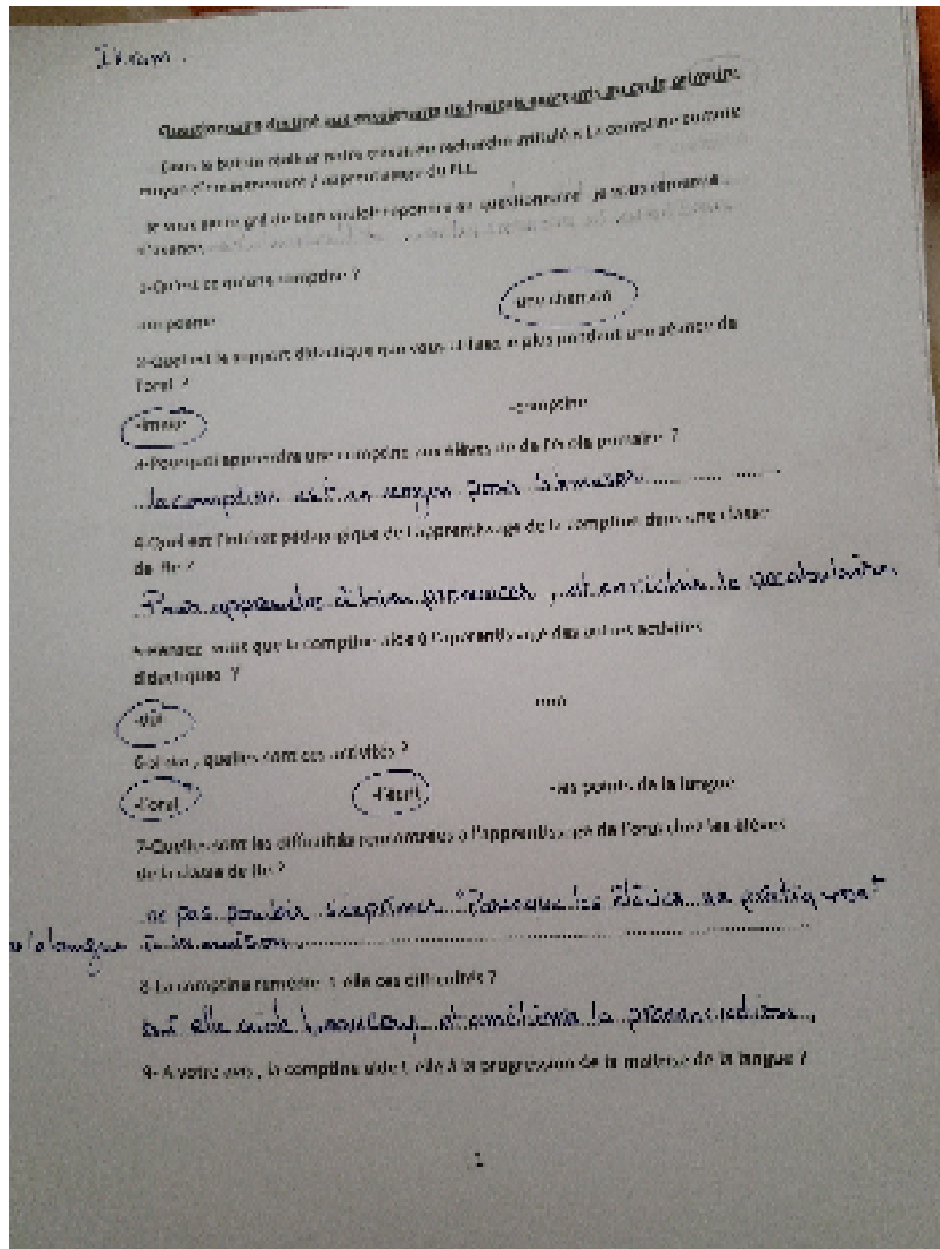 Ikram.
Questionnaire destiné aux enseignants de français
Dans le but de réaliser notre travail de recherche intitulé « La comptine comme
moyen d'enseignement / apprentissage du FLE.
Je vous serai gré de bien vouloir répondre au questionnaire je vous remercie
d'avance.
1-Qu'est ce qu'une comptine ?
-un poème -une chanson
2-Quel est le support didactique que vous utilisez le plus pendant une séance de
l'oral ?
-image -comptine
3-Pourquoi apprendre une comptine aux élèves de l'école primaire ?
la comptine est un moyen pour s'amuser
4-Quel est l'intérêt pédagogique de l'apprentissage de la comptine dans une classe
de fle ?
Pour apprendre à bien prononcer, et enrichir le vocabulaire.
5-Pensez vous que la comptine aide à l'apprentissage des autres activités
didactiques ?
-oui -non
6-si oui, quelles sont ces activités ?
-l'oral -l'écrit -les points de la langue
7-Quelles sont les difficultés rencontrées à l'apprentissage de l'oral chez les élèves
de la classe de fle ?
ne pas pouvoir s'exprimer "Parce que les élèves ne pratiquent
la langue à la maison
8-La comptine remédie t-elle ces difficultés ?
oui elle aide beaucoup et améliore la prononciation.
9- A votre avis, la comptine aide t-elle à la progression de la maitrise de la langue ?
1